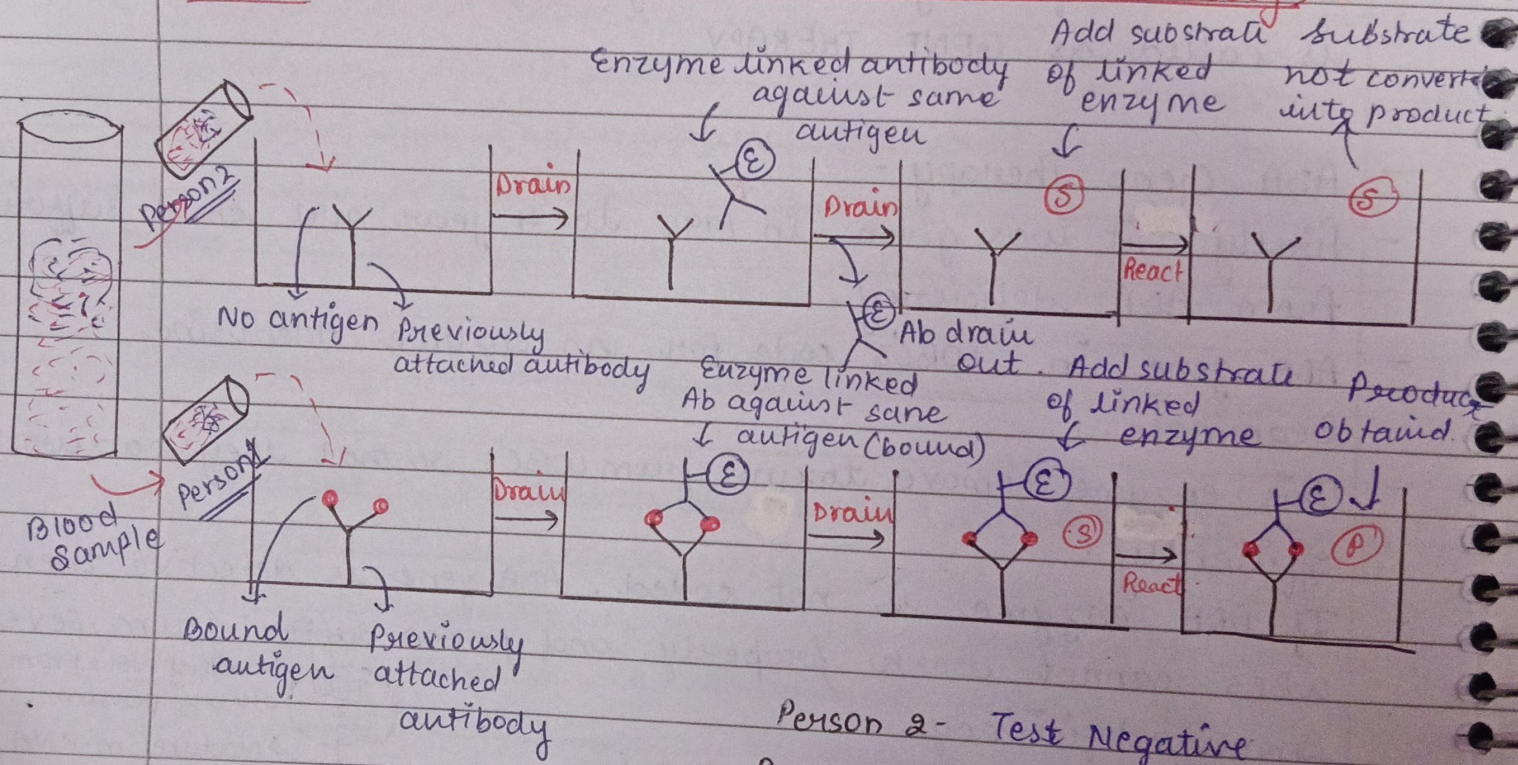 Enzyme linked antibody
against same
antigen
Add substrate
of linked
enzyme
Substrate
not converte
into product
Person 2
E
Drain
Drain
S
React
S
No antigen
Previously
attached antibody
E
Ab drain
out.
Enzyme linked
Ab against sane
antigen (bound)
Add substrate
of linked
enzyme
Product
Obtaind.
Person 1
Blood
Sample
E
Drain
Drain
E
S
React
E
P
Bound
antigen
Previously
attached
antibody
Person 2- Test Negative